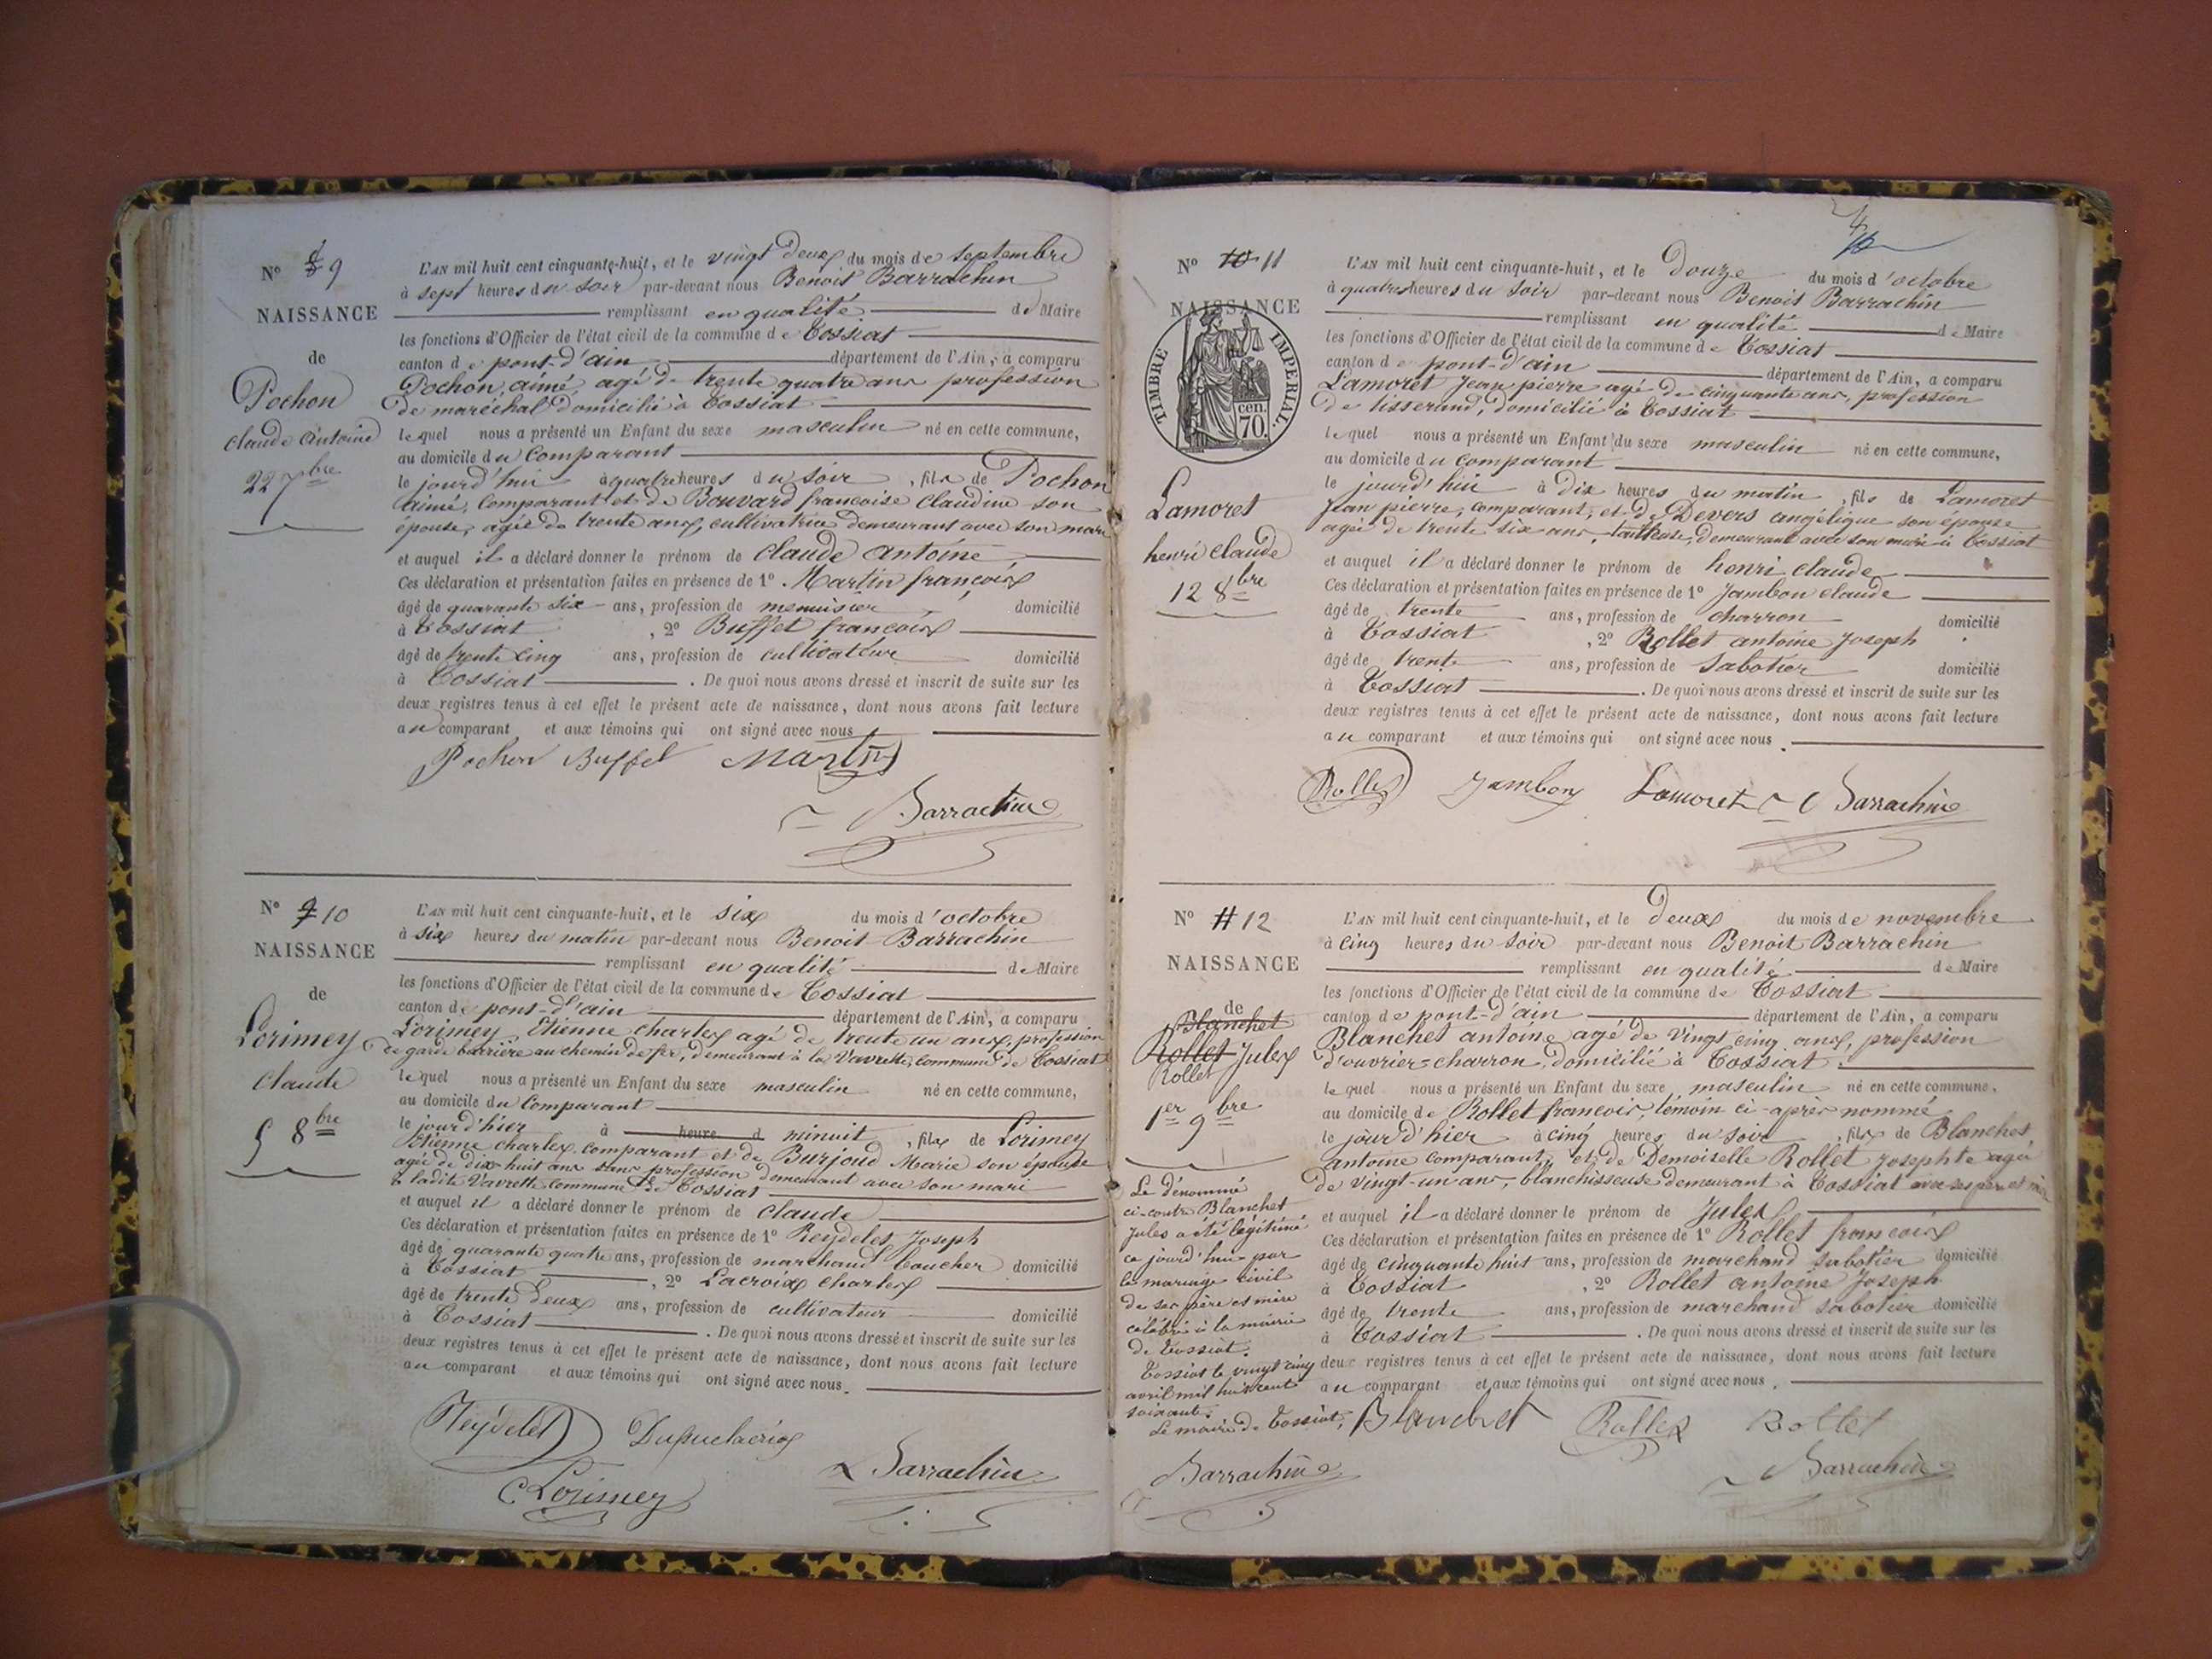 N° 8 9
NAISSANCE
de
Pochon
claude antoine
22 7bre
L'AN mil huit cent cinquante-huit, et le vingt deux du mois de septembre
à sept heures du soir par-devant nous Benoit Barrachin
remplissant en qualité de Maire
les fonctions d'Officier de l'état civil de la commune de Tossiat
canton de pont-d'ain département de l'Ain, a comparu
Pochon aimé agé de trente quatre ans profession
de maréchal domicilié à Tossiat
lequel nous a présenté un Enfant du sexe masculin né en cette commune,
au domicile du Comparant
le jourd'hui à quatre heures du soir, fils de Pochon
aimé, comparant et de Bouvard francoise Claudine son
épouse, agée de trente ans, cultivatrice demeurant avec son mari
et auquel il a déclaré donner le prénom de claude antoine
Ces déclaration et présentation faites en présence de 1° Martin françois
âgé de quarante six ans, profession de menuisier domicilié
à Tossiat, 2° Buffet françois
âgé de trente cinq ans, profession de cultivateur domicilié
à Tossiat. De quoi nous avons dressé et inscrit de suite sur les
deux registres tenus à cet effet le présent acte de naissance, dont nous avons fait lecture
au comparant et aux témoins qui ont signé avec nous
Pochon Buffet Martin
Barrachin
N° 9 10
NAISSANCE
de
Lorimey
Claude
5 8bre
L'AN mil huit cent cinquante-huit, et le six du mois d'octobre
à six heures du matin par-devant nous Benoit Barrachin
remplissant en qualité de Maire
les fonctions d'Officier de l'état civil de la commune de Tossiat
canton de pont-d'ain département de l'Ain, a comparu
Lorimey Etienne charles agé de trente un ans, profession
de garde barrière au chemin de fer, demeurant à la Vavrette, commune de Tossiat
lequel nous a présenté un Enfant du sexe masculin né en cette commune,
au domicile du Comparant
le jour d'hier à heure d minuit, fils de Lorimey
Etienne charles, comparant et de Burjoud Marie son épouse
agée de dix-huit ans sans profession demeurant avec son mari
à ladite Vavrette commune de Tossiat
et auquel il a déclaré donner le prénom de claude
Ces déclaration et présentation faites en présence de 1° Reydelet Joseph
âgé de quarante quatre ans, profession de marchand boucher domicilié
à Tossiat, 2° Lacroix Charles
âgé de trente deux ans, profession de cultivateur domicilié
à Tossiat. De quoi nous avons dressé et inscrit de suite sur les
deux registres tenus à cet effet le présent acte de naissance, dont nous avons fait lecture
au comparant et aux témoins qui ont signé avec nous.
Reydelet
Lorimey Barrachin
N° 10 11
NAISSANCE
TIMBRE IMPERIAL.
cen.
70.
Lamoret
henri claude
12 8bre
L'AN mil huit cent cinquante-huit, et le Douze du mois d'octobre
à quatre heures du soir par-devant nous Benoit Barrachin
remplissant en qualité de Maire
les fonctions d'Officier de l'état civil de la commune de Tossiat
canton de pont-d'ain département de l'Ain, a comparu
Lamoret Jean pierre agé de cinquante ans, profession
de tisserand, domicilié à Tossiat
lequel nous a présenté un Enfant du sexe masculin né en cette commune,
au domicile du comparant
le jourd'hui à dix heures du matin, fils de Lamoret
Jean pierre, comparant, et de Devers angélique son épouse
agée de trente six ans, tailleuse, demeurant avec son mari à Tossiat
et auquel il a déclaré donner le prénom de henri claude
Ces déclaration et présentation faites en présence de 1° Jambon claude
âgé de trente ans, profession de charron domicilié
à Tossiat, 2° Rollet antoine Joseph
âgé de trente ans, profession de Sabotier domicilié
à Tossiat. De quoi nous avons dressé et inscrit de suite sur les
deux registres tenus à cet effet le présent acte de naissance, dont nous avons fait lecture
au comparant et aux témoins qui ont signé avec nous.
Rollet Jambon Lamoret Barrachin
N° 11 12
NAISSANCE
de
Blanchet
Rollet Jules
Rollet
1er 9bre
Le dénommé
ci-contre Blanchet
Jules a été légitimé
ce jourd'hui par
le mariage civil
de ses père et mère
célébré à la mairie
de Tossiat.
Tossiat le vingt cinq
avril mil huit cent
soixante.
Le maire de Tossiat,
Barrachin
L'AN mil huit cent cinquante-huit, et le Deux du mois de novembre
à cinq heures du soir par-devant nous Benoit Barrachin
remplissant en qualité de Maire
les fonctions d'Officier de l'état civil de la commune de Tossiat
canton de pont-d'ain département de l'Ain, a comparu
Blanchet antoine, agé de vingt cinq ans, profession
d'ouvrier-charron, domicilié à Tossiat.
lequel nous a présenté un Enfant du sexe masculin né en cette commune.
au domicile de Rollet francois, témoin ci-après nommé
le jour d'hier à cinq heures du soir, fils de Blanchet
antoine comparant, et de Demoiselle Rollet Josephte agée
de vingt-un ans, blanchisseuse demeurant à Tossiat avec ses père et mère
et auquel il a déclaré donner le prénom de Jules
Ces déclaration et présentation faites en présence de 1° Rollet francois
âgé de cinquante huit ans, profession de marchand sabotier domicilié
à Tossiat, 2° Rollet antoine Joseph
âgé de trente ans, profession de marchand sabotier domicilié
à Tossiat. De quoi nous avons dressé et inscrit de suite sur les
deux registres tenus à cet effet le présent acte de naissance, dont nous avons fait lecture
au comparant et aux témoins qui ont signé avec nous.
Blanchet Rollet Rollet
Barrachin